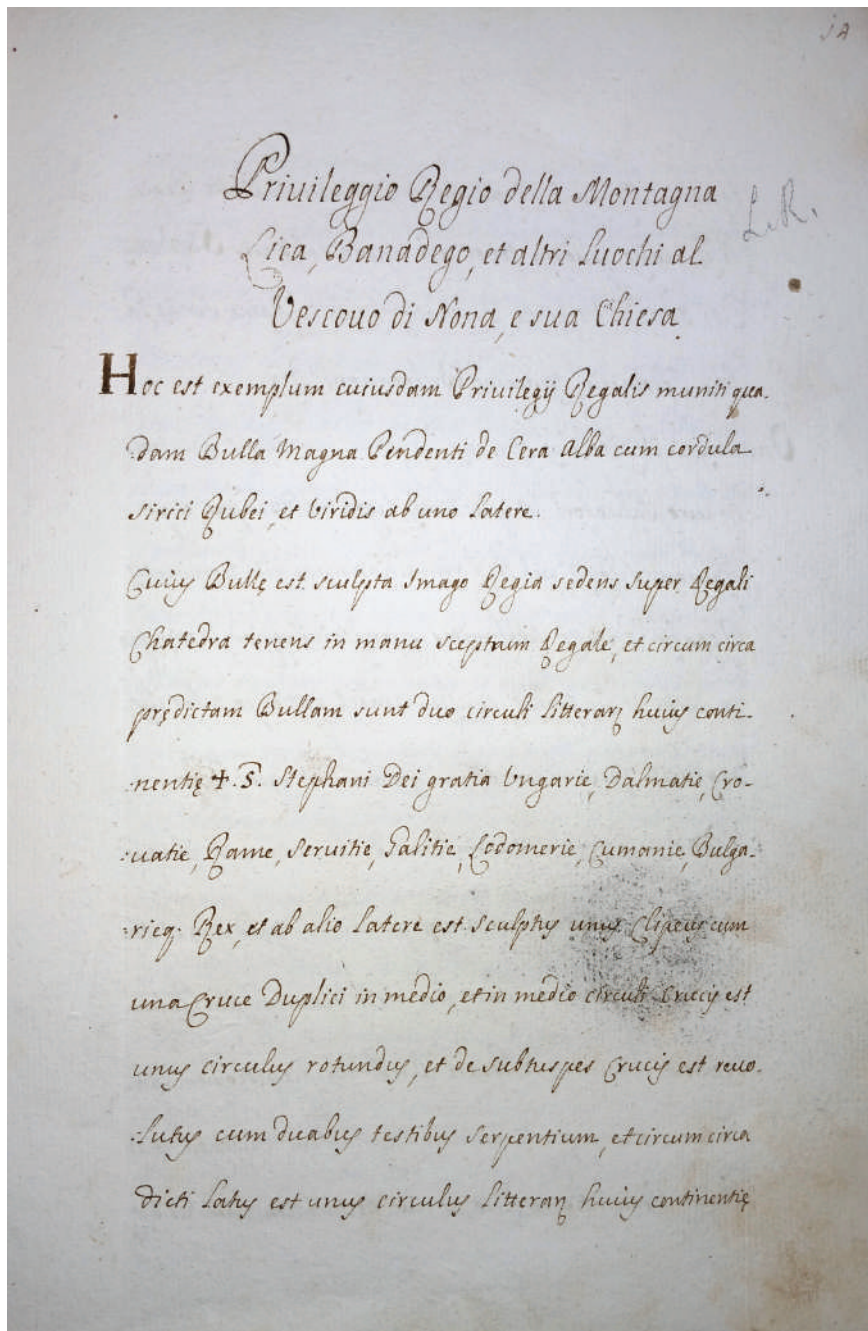 Priuileggio Regio della Montagna
Lica, Banadego, et altri luochi al
Vescouo di Nona, e sua Chiesa
L. R.
Hoc est exemplum cuiusdam Priuilegij Regalis muniti qua-
dam Bulla Magna Pendenti de Cera Alba cum cordula
sirici Rubei, et Viridis ab uno Latere.
Cuius Bullę est sculpta Imago Regia sedens super Regali
Chatedra tenens in manu sceptrum Regale, et circum circa
prędictam Bullam sunt duo circuli litterarꝫ huius conti-
nentię ✝. S. Stephani Dei gratia Vngarie, Dalmatie, Cro-
uatie, Rame, Seruitie, Galitie, Lodomerie, Cumanie, Bulga-
rieq. Rex, et ab alio Latere est sculptus unus Clipeus cum
una Cruce Duplici in medio, et in medio circuli Crucis est
unus circulus rotundus, et de subtus pes Crucis est reuo-
lutus cum duabus testibus serpentium, et circum circa
dicti Latus est unus circulus litterarꝫ huius continentię